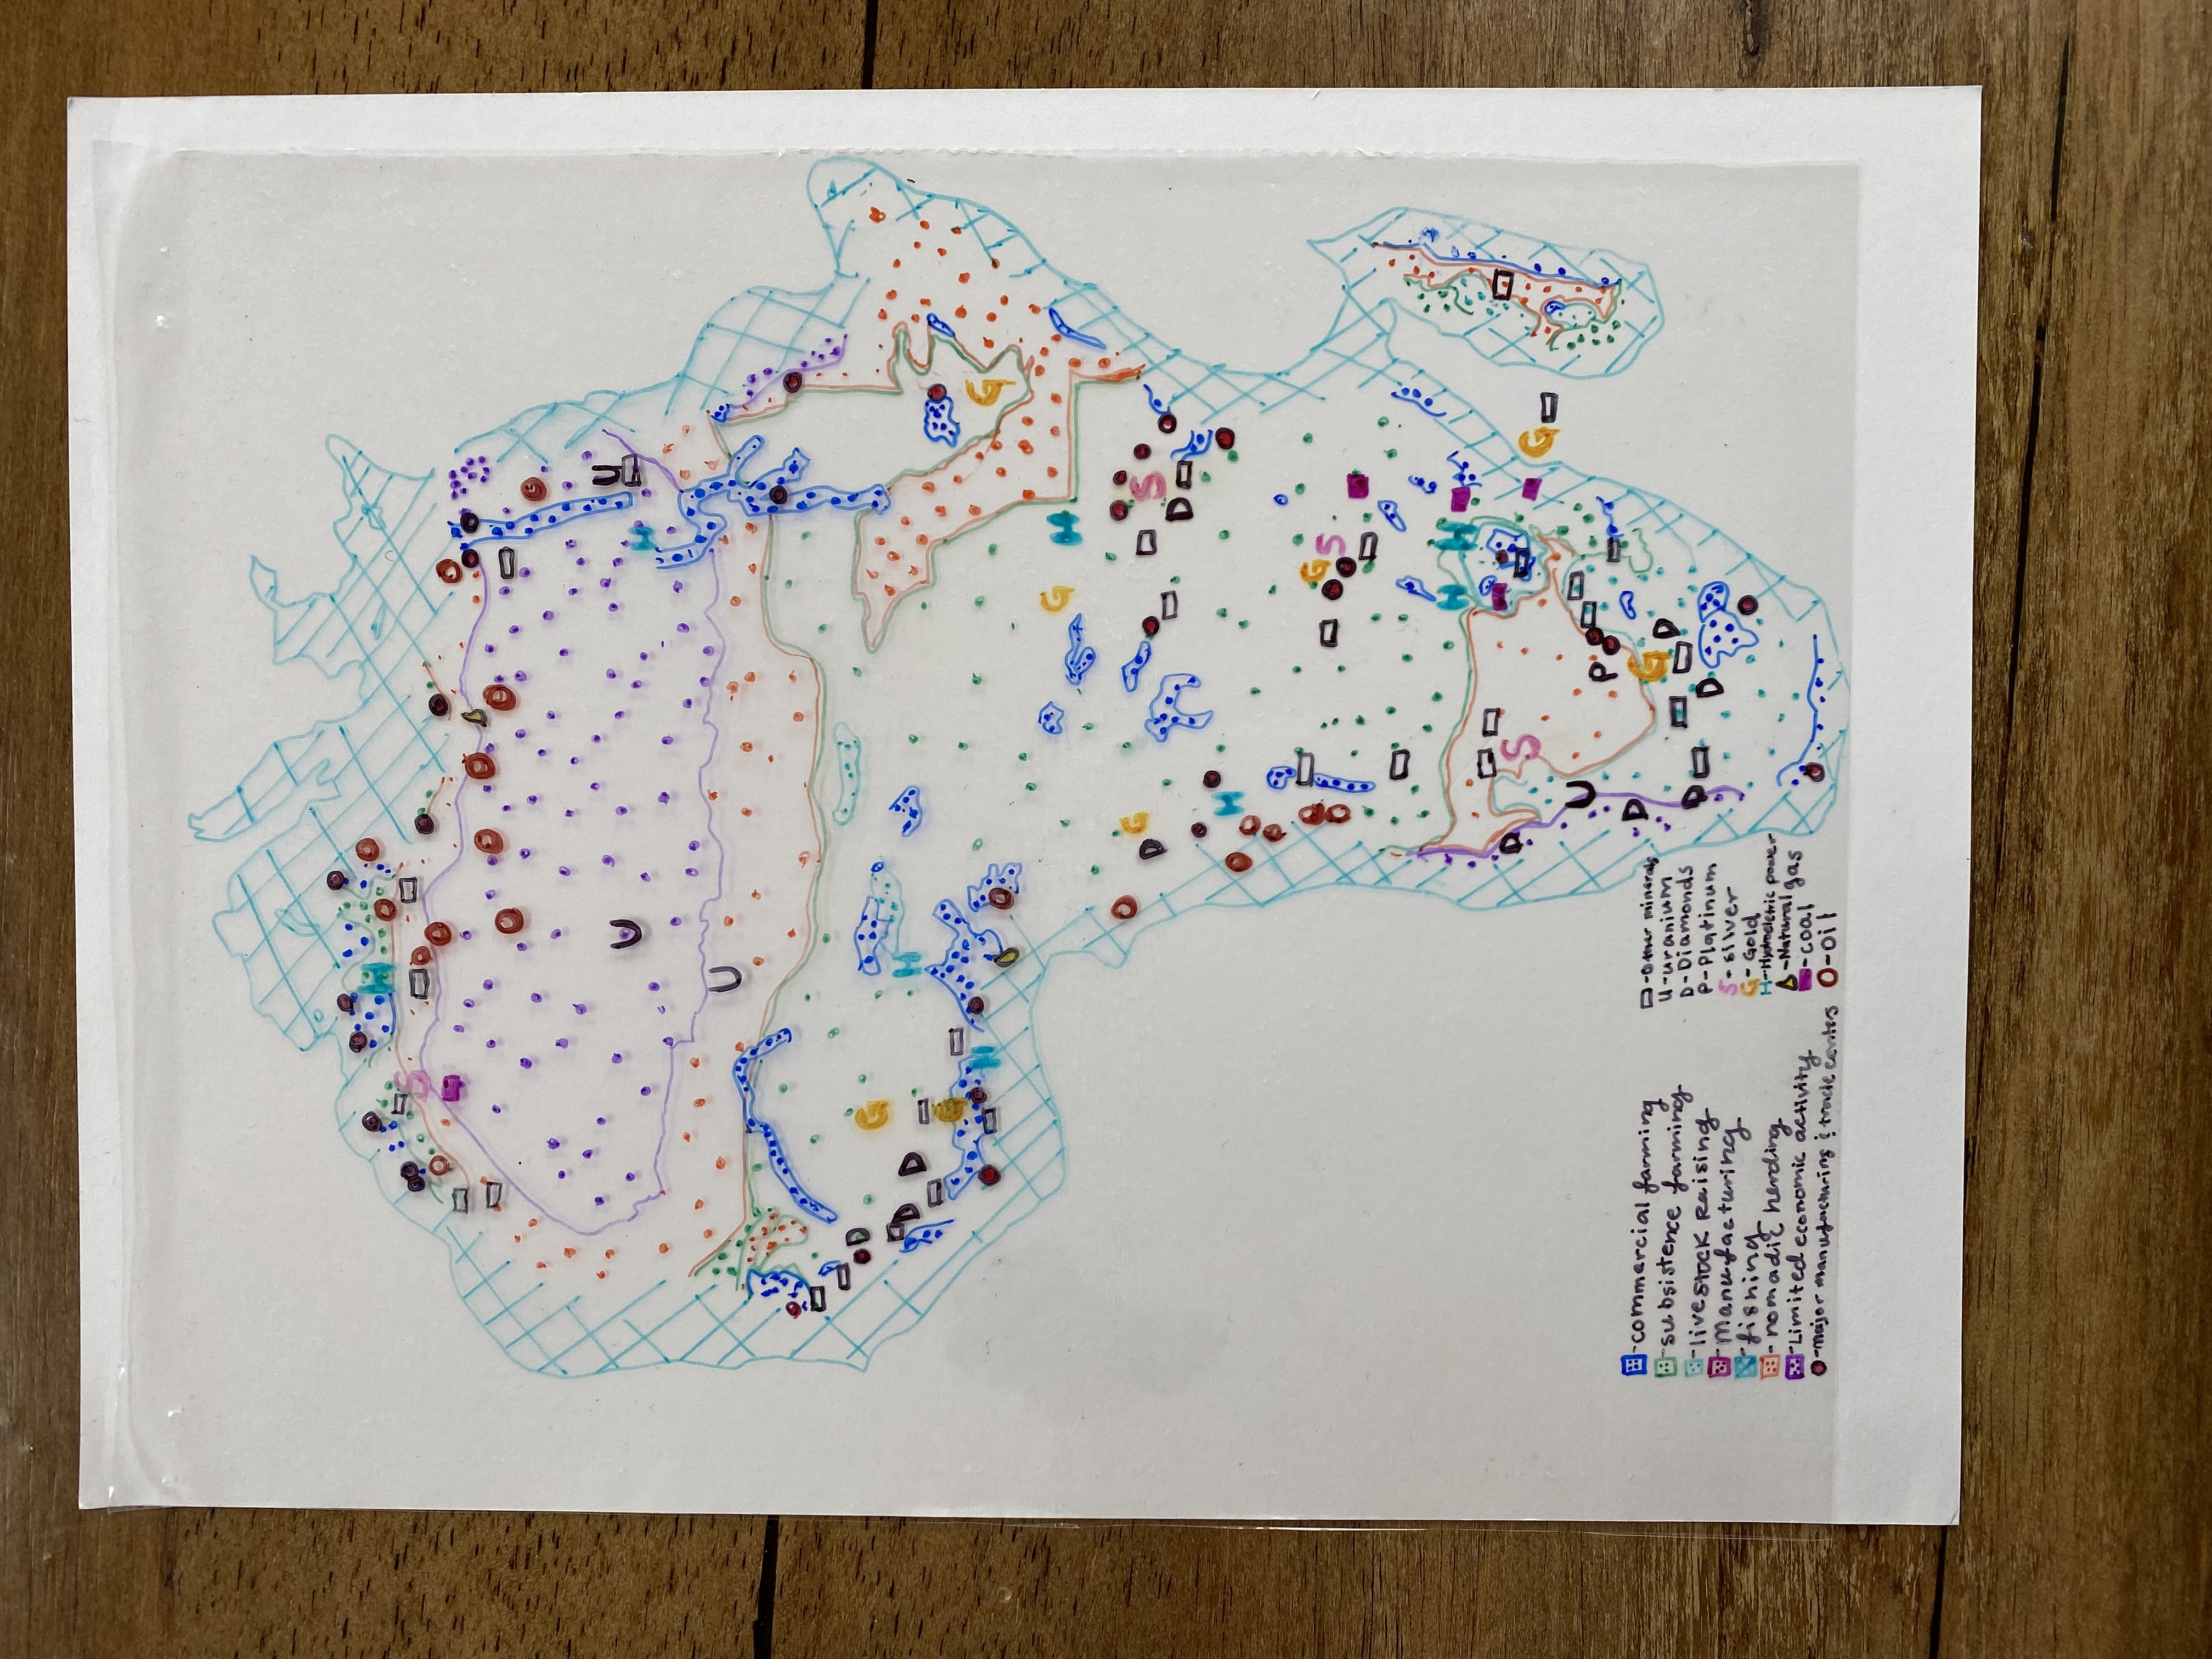 S
H
U
U
H
U
G
D
D
D
H
G
H
G
G
H
D
G
S
D
H
G
S
H
H
D
S
G
U
P
D
G
D
D
D
-commercial farming
-subsistence farming
-livestock Raising
-Manufacturing
-fishing
-nomadic herding
-Limited economic activity
-Major manufacturing & trade centers
-Other minerals
U-uranium
D-Diamonds
P-Platinum
S-Silver
G-Gold
H-Hydroeletric power
-Natural gas
-coal
O-Oil